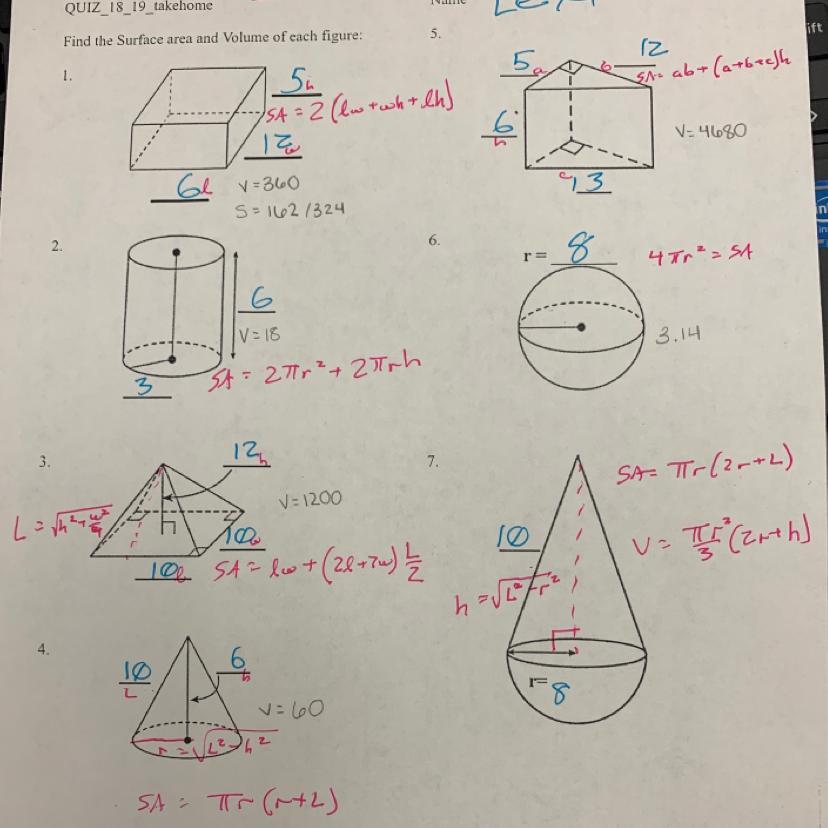 QUIZ_18_19_takehome
Name
Find the Surface area and Volume of each figure:
1.
5h
SA = 2 (lw+wh+lh)
12w
6l
V=360
S = 162/324
2.
6
V=18
3
SA = 2πr² + 2πrh
3.
12h
V=1200
L = √h²+w²/4
10w
10l
SA = lw + (2l+2w) L/2
4.
10
L
6h
V=60
r = √L²-h²
SA = πr (r+L)
5.
5a
b 12
SA= ab+(a+b+c)h
6
h
V=4680
c 13
6.
r= 8
4πr² = SA
3.14
7.
SA= πr(2r+L)
10
V = πr²/3 (2r+h)
h = √L²-r²
r=
8
ift
in